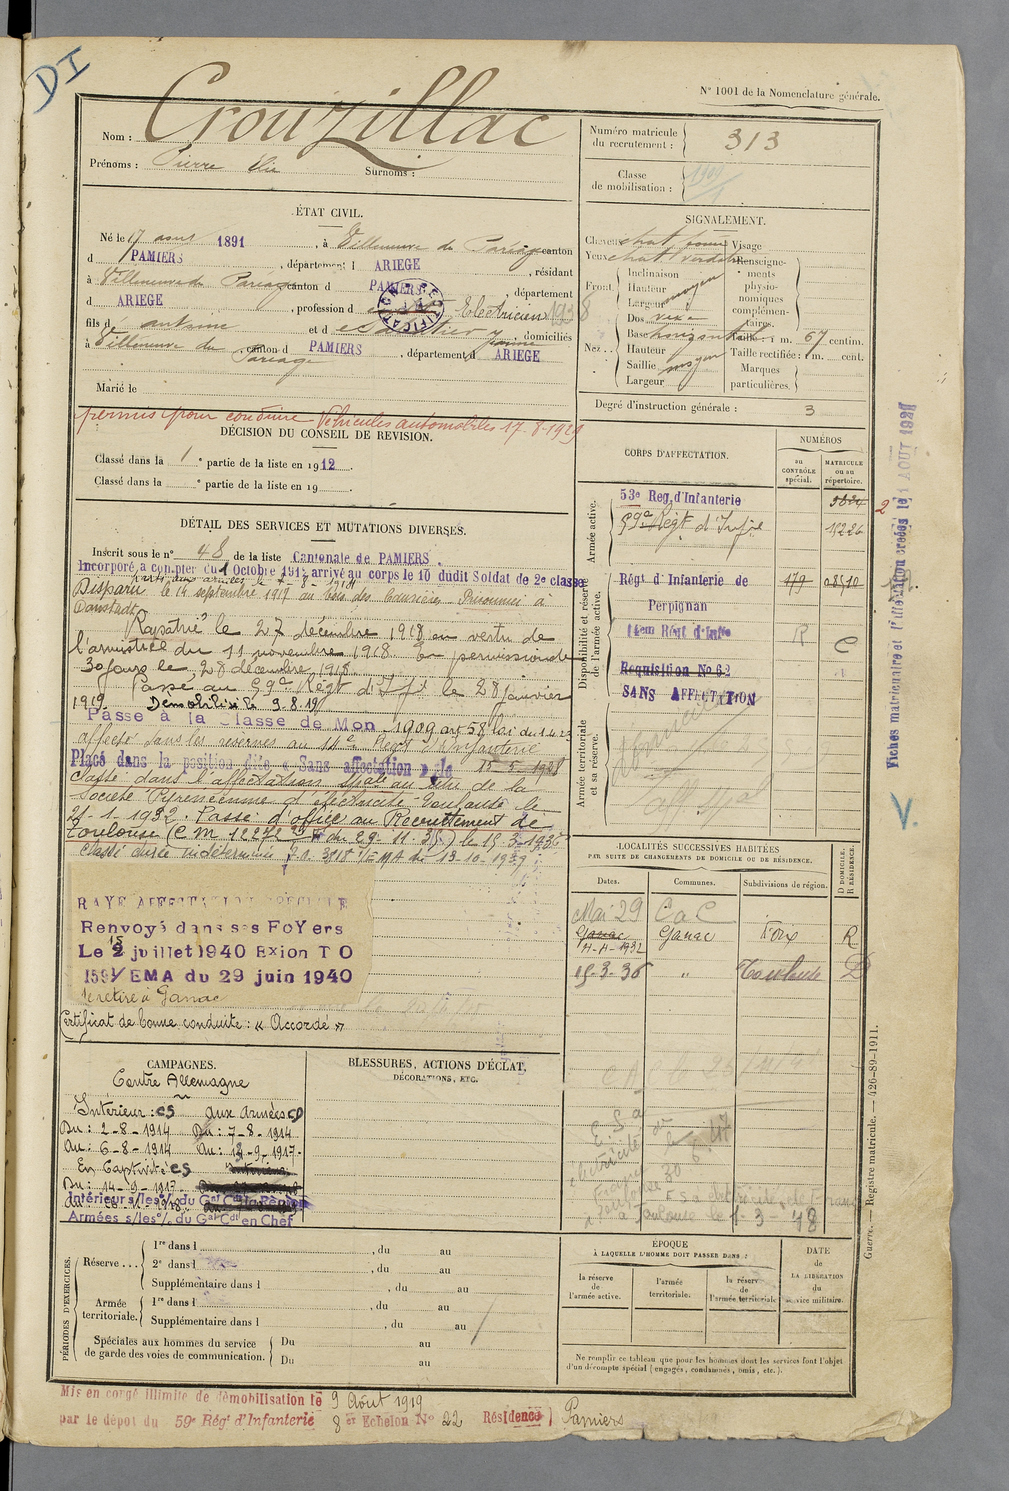 DI
N° 1001 de la Nomenclature générale.
Nom : Crouzillac
Prénoms : Pierre Elie Surnoms :
Numéro matricule du recrutement : 313
Classe de mobilisation : 1909
ÉTAT CIVIL.
Né le 17 août 1891, à Villeneuve du Paréage canton
d PAMIERS, département d ARIEGE, résidant
à Villeneuve du Paréage canton d PAMIERS, département
d ARIEGE, profession d Electricien 1938
fils d antoine et d domiciliés
à Villeneuve du Paréage, canton d PAMIERS, département d ARIEGE
Marié le
permis pour conduire Véhicules automobiles 17-8-1929
SIGNALEMENT.
Cheveux chat foncé Visage
Yeux chat verdâtre
Renseignements physionomiques complémentaires.
Front.
Inclinaison
Hauteur
Largeur moyen
Nez.
Dos vexe
Base horizontal
Hauteur
Saillie moyen
Largeur
Taille : 1 m. 67 centim.
Taille rectifiée : 1 m. cent.
Marques particulières.
Degré d'instruction générale : 3
DÉCISION DU CONSEIL DE REVISION.
Classé dans la 1e partie de la liste en 1912.
Classé dans la e partie de la liste en 19 .
DÉTAIL DES SERVICES ET MUTATIONS DIVERSES.
Inscrit sous le n° 48 de la liste Cantonale de PAMIERS
Incorporé à compter du 1 Octobre 1912 arrivé au corps le 10 dudit Soldat de 2e classe
Parti aux armées le
Disparu le 14 septembre 1917 au bois des Caurières Prisonnier à
Rapatrié le 27 décembre 1918 en vertu de
l'armistice du 11 novembre 1918. En permission de
30 jours le 28 décembre 1918
Passé au 59e Régt d'Ife le 28 janvier
1919. Démobilisé le 9.8.19
Passé à la Classe de Mon 1909 art 58 loi du 1.4.23
affecté dans les réserves au 14e Régt d'Infanterie
Placé dans la position dite « Sans affectation » le 15-5-1928
Classé dans l'affectation spéale au titre de la
Société Pyrénéenne d'électricité Toulouse le
21-1-1932. Passé d'office au Recrutement de
Toulouse (C.M. 12272 du 29.11.35) le 15-3-1936
Classé durée indéterminée
RAYÉ AFFECTATION SPÉCIALE
Renvoyé dans ses FoYers
Le 15 juillet 1940 Exion T O
1591/EMA du 29 juin 1940
Se retire à Ganac
Certificat de bonne conduite : « Accordé »
CORPS D'AFFECTATION.
NUMÉROS
au CONTRÔLE spécial.
MATRICULE ou au répertoire.
Armée active.
53e Reg. d'Infanterie
59e Régt d'Infie 11226
Disponibilité et réserve de l'armée active.
Régt d'Infanterie de Perpignan 179
14em Régt d'Infie R C
Requisition No 62
SANS AFFECTATION
Armée territoriale et sa réserve.
Fiches matriculaire et d'affectation créées le 1 AOUT 1928
V.
LOCALITÉS SUCCESSIVES HABITÉES
PAR SUITE DE CHANGEMENTS DE DOMICILE OU DE RÉSIDENCE.
Dates. Communes. Subdivisions de région. D DOMICILE. R RÉSIDENCE.
Mai 29 C a C
Ganac Ganac Foix R
11-4-1932
15-3-36 " Toulouse D
CAMPAGNES.
Contre Allemagne
Intérieur : CS aux armées CD
Du : 2-8-1914 Du : 7-8-1914
Au : 6-8-1914 Au : 13-9-1917
En Captivité CS
Du : 14-9-1917
Intérieur s/les o/. du Gal Cdt la Région
Armées s/les o/. du Gal Cdt en Chef
BLESSURES, ACTIONS D'ÉCLAT,
DÉCORATIONS, ETC.
à Toulouse le 1-3-48
PÉRIODES D'EXERCICES.
Réserve ...
1re dans l , du au
2e dans l , du au
Supplémentaire dans l , du au
Armée territoriale.
1re dans l , du au
Supplémentaire dans l , du au
Spéciales aux hommes du service de garde des voies de communication.
Du au
Du au
ÉPOQUE
À LAQUELLE L'HOMME DOIT PASSER DANS :
la réserve de l'armée active.
l'armée territoriale.
la réserve de l'armée territoriale.
DATE de LA LIBÉRATION du service militaire.
Ne remplir ce tableau que pour les hommes dont les services font l'objet d'un décompte spécial (engagés, condamnés, omis, etc.).
Guerre. — Registre matricule. — 426-89-1911.
Mis en congé illimité de démobilisation le 9 Août 1919
par le dépôt du 59e Régt d'Infanterie 8em Echelon No 22 Résidence ) Pamiers